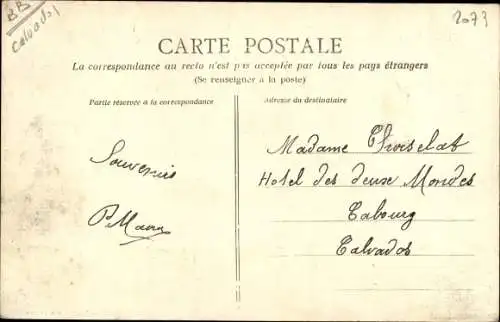 BB
Calvados
2073
CARTE POSTALE
La correspondance au recto n'est pas acceptée par tous les pays étrangers
(Se renseigner à la poste)
Partie réservée à la correspondance
Adresse du destinataire
Souvenir
Madame
Hotel des deux Mondes
Cabourg
Calvados